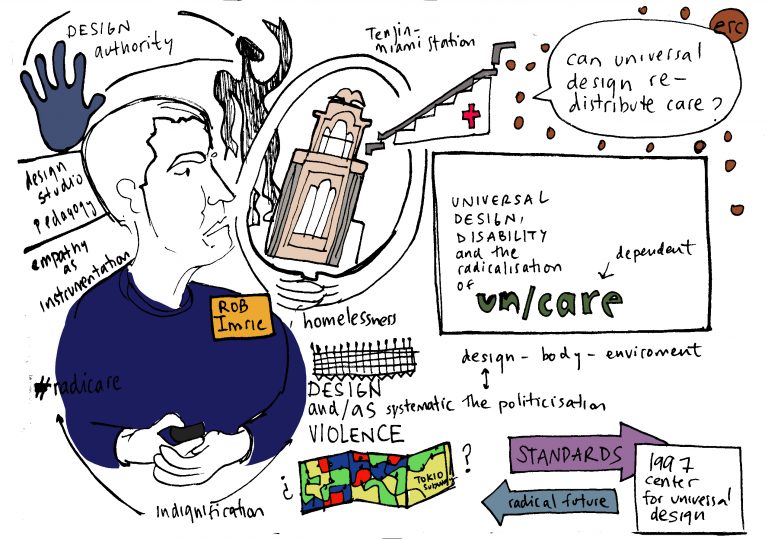 DESIGN
authority
Tenjin-
miami station
erc
can universal
design re-
distribute care?
design
studio
pedagogy
empathy
as
instrumentation
UNIVERSAL
DESIGN,
DISABILITY
and the
radicalisation
of
un/care
dependent
ROB
Imrie
homelessness
design - body - enviroment
#radicare
DESIGN
and/as systematic the politicisation
VIOLENCE
¿
TOKIO
Subway
?
STANDARDS
radical future
1997
center
for universal
design
indignification